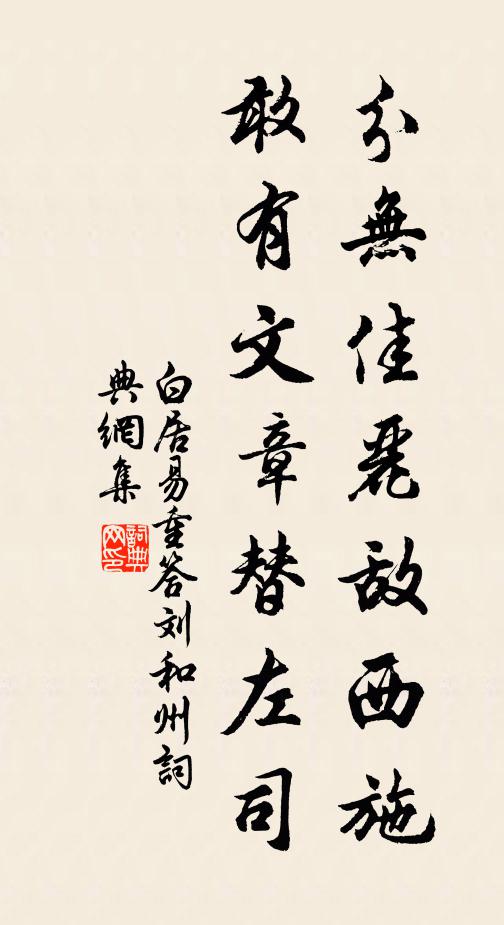 分無佳麗敌西施
敢有文章替左司
白居易重答刘和州詞
典網集
詞典
网印